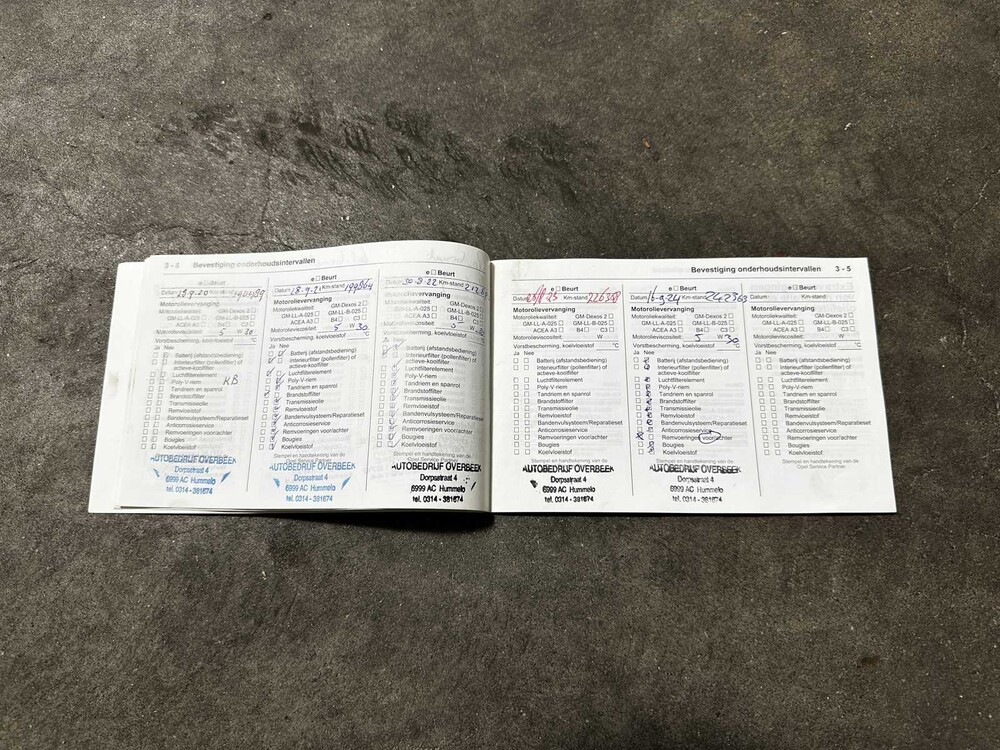 3 - 4 Bevestiging onderhoudsintervallen
e ☐ Beurt
Datum 15.9.20 Km-stand
Motorolievervanging
Motoroliekwaliteit: GM-Dexos 2 ☐
GM-LL-A-025 ☐ GM-LL-B-025 ☐
ACEA A3 ☐ B4 ☐ C3 ☐
Motorolieviscositeit: 5 W 30
Vorstbescherming, koelvloeistof °C
Ja Nee
Batterij (afstandsbediening)
Interieurfilter (pollenfilter) of
actieve-koolfilter
Luchtfilterelement
Poly-V-riem KB
Tandriem en spanrol
Brandstoffilter
Transmissieolie
Remvloeistof
Bandenvulsysteem/Reparatieset
Anticorrosieservice
Remvoeringen voor/achter
Bougies
Koelvloeistof
AUTOBEDRIJF OVERBEEK
Dorpsstraat 4
6999 AC Hummelo
tel. 0314 - 381674
e ☐ Beurt
Datum 28.9.21 Km-stand 199864
Motorolievervanging
Motoroliekwaliteit: GM-Dexos 2 ☐
GM-LL-A-025 ☐ GM-LL-B-025 ☐
ACEA A3 ☐ B4 ☐ C3 ☐
Motorolieviscositeit: 5 W 30
Vorstbescherming, koelvloeistof °C
Ja Nee
Batterij (afstandsbediening)
Interieurfilter (pollenfilter) of
actieve-koolfilter
Luchtfilterelement
Poly-V-riem
Tandriem en spanrol
Brandstoffilter
Transmissieolie
Remvloeistof
Bandenvulsysteem/Reparatieset
Anticorrosieservice
Remvoeringen voor/achter
Bougies
Koelvloeistof
Stempel en handtekening van de
Opel Service Partner
AUTOBEDRIJF OVERBEEK
Dorpsstraat 4
6999 AC Hummelo
tel. 0314 - 381674
e ☐ Beurt
Datum 30-9-22 Km-stand
Motorolievervanging
Motoroliekwaliteit: GM-Dexos 2 ☐
GM-LL-A-025 ☐ GM-LL-B-025 ☐
ACEA A3 ☐ B4 ☐ C3 ☐
Motorolieviscositeit: 5 W 30
Vorstbescherming, koelvloeistof °C
Ja Nee
Batterij (afstandsbediening)
Interieurfilter (pollenfilter) of
actieve-koolfilter
Luchtfilterelement
Poly-V-riem
Tandriem en spanrol
Brandstoffilter
Transmissieolie
Remvloeistof
Bandenvulsysteem/Reparatieset
Anticorrosieservice
Remvoeringen voor/achter
Bougies
Koelvloeistof
Stempel en handtekening van de
Opel Service Partner
AUTOBEDRIJF OVERBEEK
Dorpsstraat 4
6999 AC Hummelo
tel. 0314 - 381674
Bevestiging onderhoudsintervallen 3 - 5
e ☐ Beurt
Datum Km-stand 226358
Motorolievervanging
Motoroliekwaliteit: GM-Dexos 2 ☐
GM-LL-A-025 ☐ GM-LL-B-025 ☐
ACEA A3 ☐ B4 ☐ C3 ☐
Motorolieviscositeit: W
Vorstbescherming, koelvloeistof °C
Ja Nee
Batterij (afstandsbediening)
Interieurfilter (pollenfilter) of
actieve-koolfilter
Luchtfilterelement
Poly-V-riem
Tandriem en spanrol
Brandstoffilter
Transmissieolie
Remvloeistof
Bandenvulsysteem/Reparatieset
Anticorrosieservice
Remvoeringen voor/achter
Bougies
Koelvloeistof
Stempel en handtekening van de
Opel Service Partner
AUTOBEDRIJF OVERBEEK
Dorpsstraat 4
6999 AC Hummelo
tel. 0314 - 381674
e ☐ Beurt
Datum 16-9-24 Km-stand 242369
Motorolievervanging
Motoroliekwaliteit: GM-Dexos 2 ☐
GM-LL-A-025 ☐ GM-LL-B-025 ☐
ACEA A3 ☐ B4 ☐ C3 ☐
Motorolieviscositeit: 5 W 30
Vorstbescherming, koelvloeistof °C
Ja Nee
Batterij (afstandsbediening)
Interieurfilter (pollenfilter) of
actieve-koolfilter
Luchtfilterelement
Poly-V-riem
Tandriem en spanrol
Brandstoffilter
Transmissieolie
Remvloeistof
Bandenvulsysteem/Reparatieset
Anticorrosieservice
Remvoeringen voor/achter
Bougies
Koelvloeistof
Stempel en handtekening van de
Opel Service Partner
AUTOBEDRIJF OVERBEEK
Dorpsstraat 4
6999 AC Hummelo
tel. 0314 - 381674
e ☐ Beurt
Datum Km-stand
Motorolievervanging
Motoroliekwaliteit: GM-Dexos 2 ☐
GM-LL-A-025 ☐ GM-LL-B-025 ☐
ACEA A3 ☐ B4 ☐ C3 ☐
Motorolieviscositeit: W
Vorstbescherming, koelvloeistof °C
Ja Nee
Batterij (afstandsbediening)
Interieurfilter (pollenfilter) of
actieve-koolfilter
Luchtfilterelement
Poly-V-riem
Tandriem en spanrol
Brandstoffilter
Transmissieolie
Remvloeistof
Bandenvulsysteem/Reparatieset
Anticorrosieservice
Remvoeringen voor/achter
Bougies
Koelvloeistof
Stempel en handtekening van de
Opel Service Partner